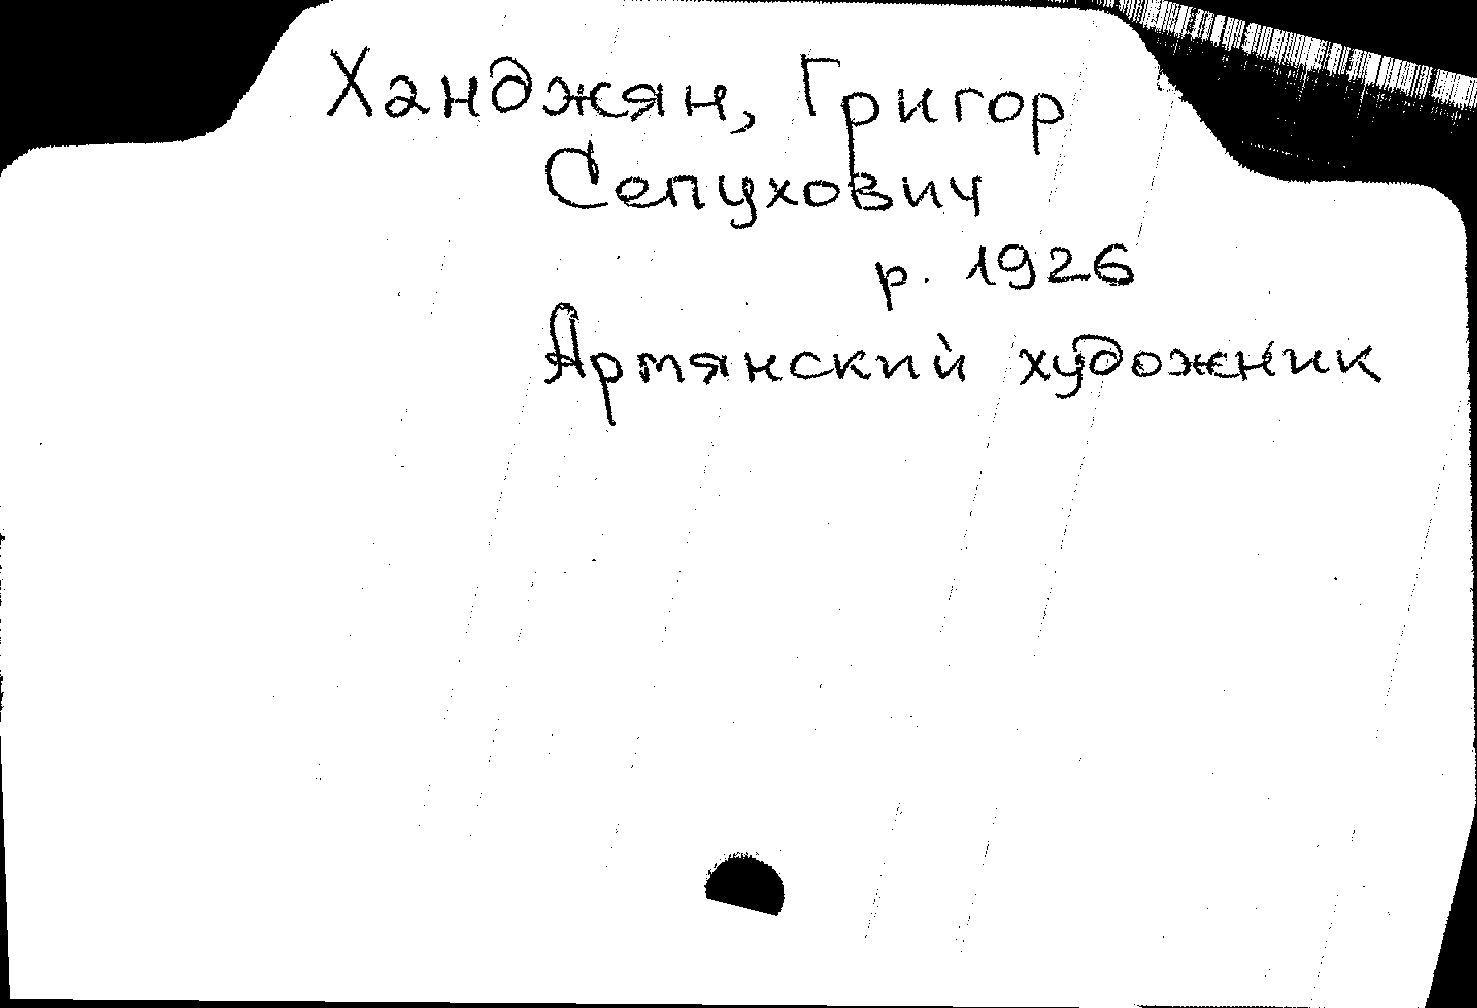 Ханджян, Григор
Сепухович
р. 1926
Армянский художник